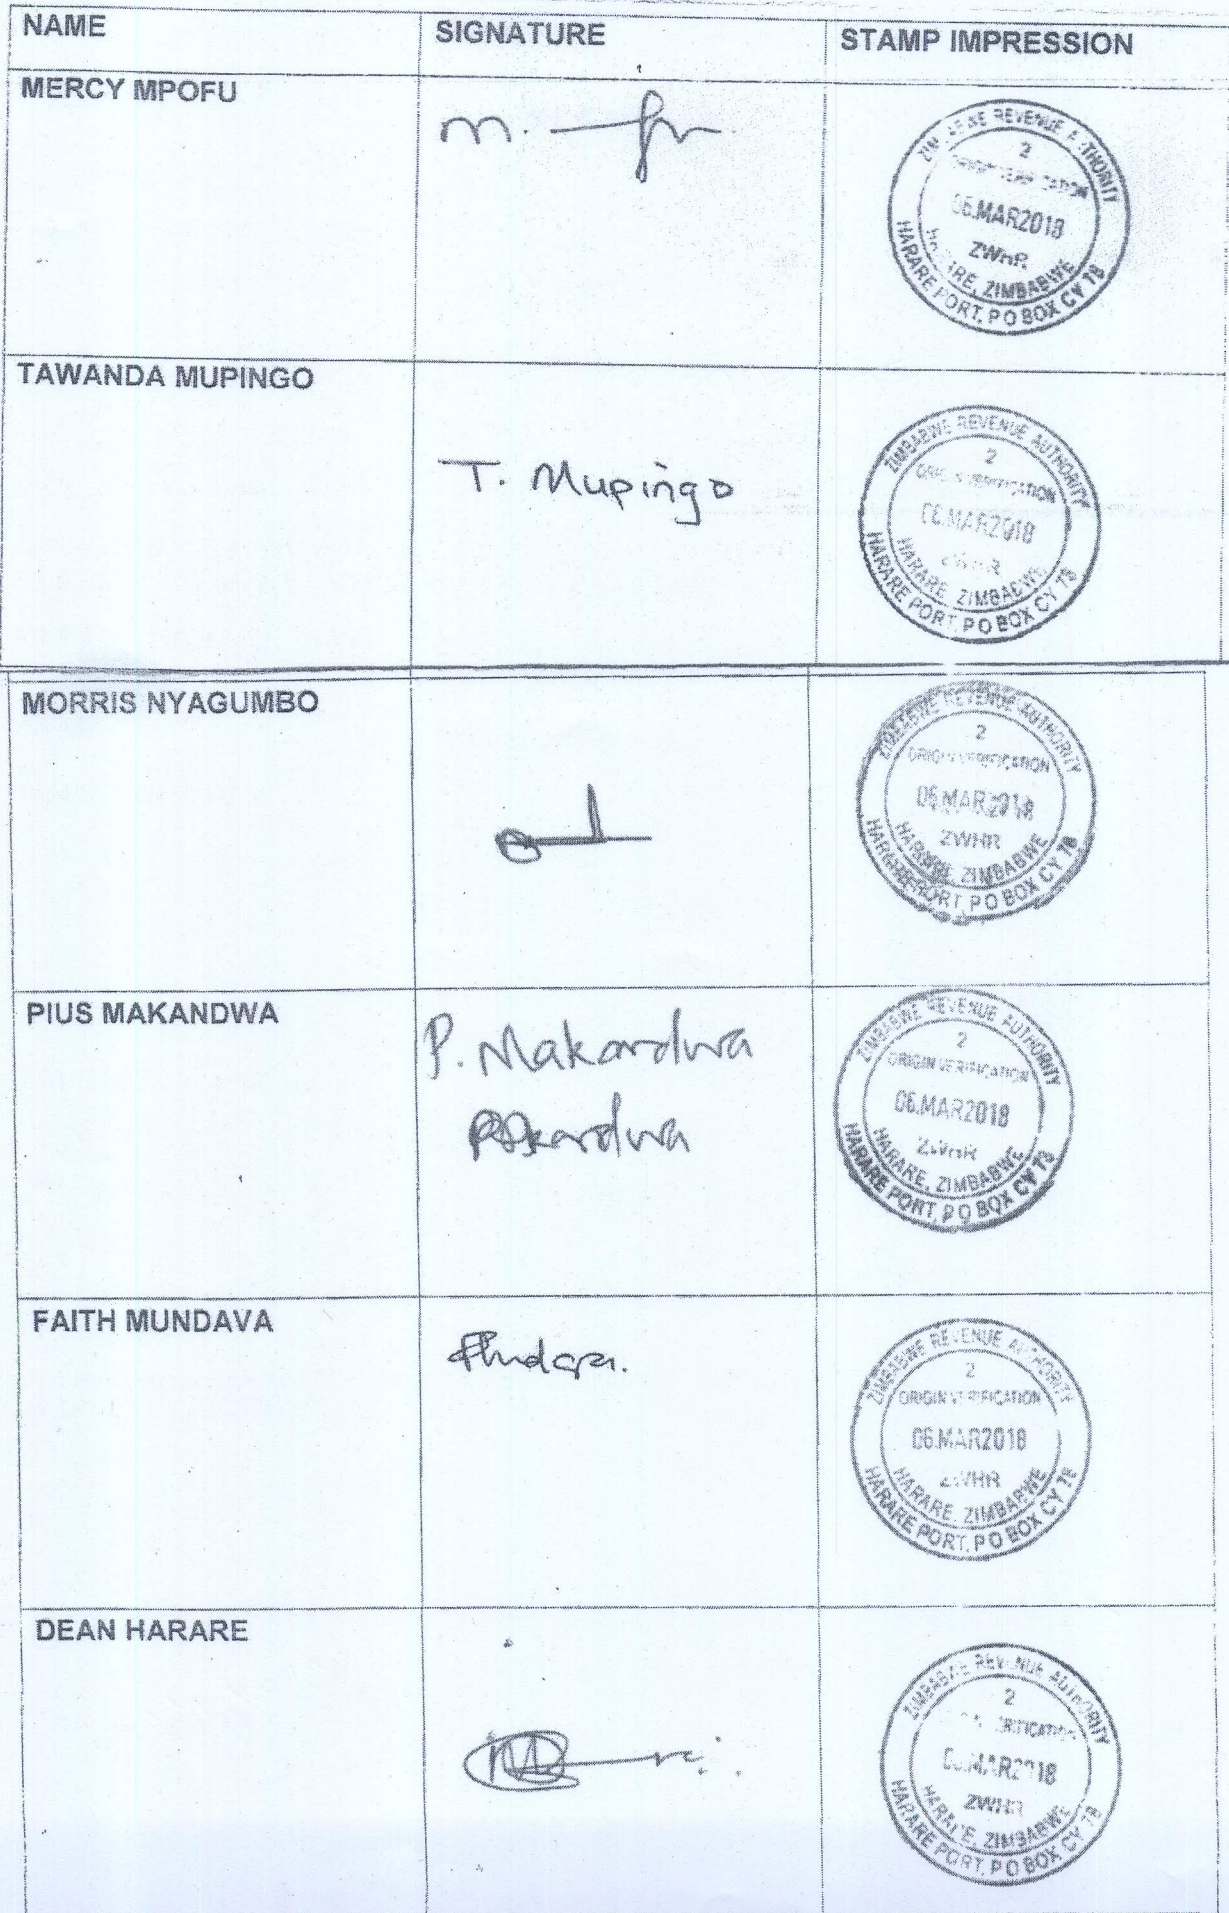 NAME SIGNATURE STAMP IMPRESSION
MERCY MPOFU
m.
ZIMBABWE REVENUE AUTHORITY
2
ORIGIN VERIFICATION
06.MAR2018
ZWHR
HARARE, ZIMBABWE
HARARE PORT, P O BOX CY 78
TAWANDA MUPINGO
T. Mupingo
ZIMBABWE REVENUE AUTHORITY
2
ORIGIN VERIFICATION
06.MAR2018
ZWHR
HARARE, ZIMBABWE
HARARE PORT, P O BOX CY 78
MORRIS NYAGUMBO
ZIMBABWE REVENUE AUTHORITY
2
ORIGIN VERIFICATION
06.MAR2018
ZWHR
HARARE, ZIMBABWE
HARARE PORT, P O BOX CY 78
PIUS MAKANDWA
P. Makandwa
ZIMBABWE REVENUE AUTHORITY
2
ORIGIN VERIFICATION
06.MAR2018
ZWHR
HARARE, ZIMBABWE
HARARE PORT, P O BOX CY 78
FAITH MUNDAVA
ZIMBABWE REVENUE AUTHORITY
2
ORIGIN VERIFICATION
06.MAR2018
ZWHR
HARARE, ZIMBABWE
HARARE PORT, P O BOX CY 78
DEAN HARARE
ZIMBABWE REVENUE AUTHORITY
2
ORIGIN VERIFICATION
06.MAR2018
ZWHR
HARARE, ZIMBABWE
HARARE PORT, P O BOX CY 78